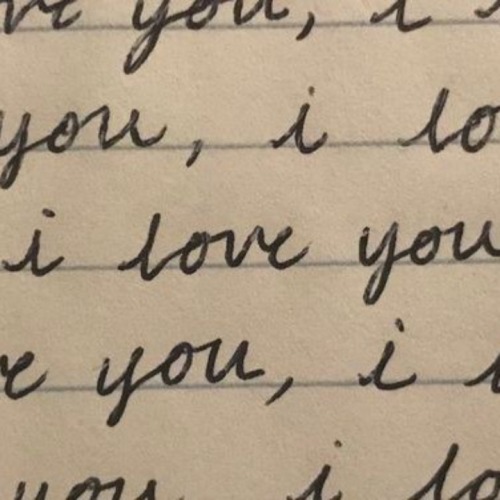 ve you, i
you, i lo
i love you
re you, i l
you, i lo